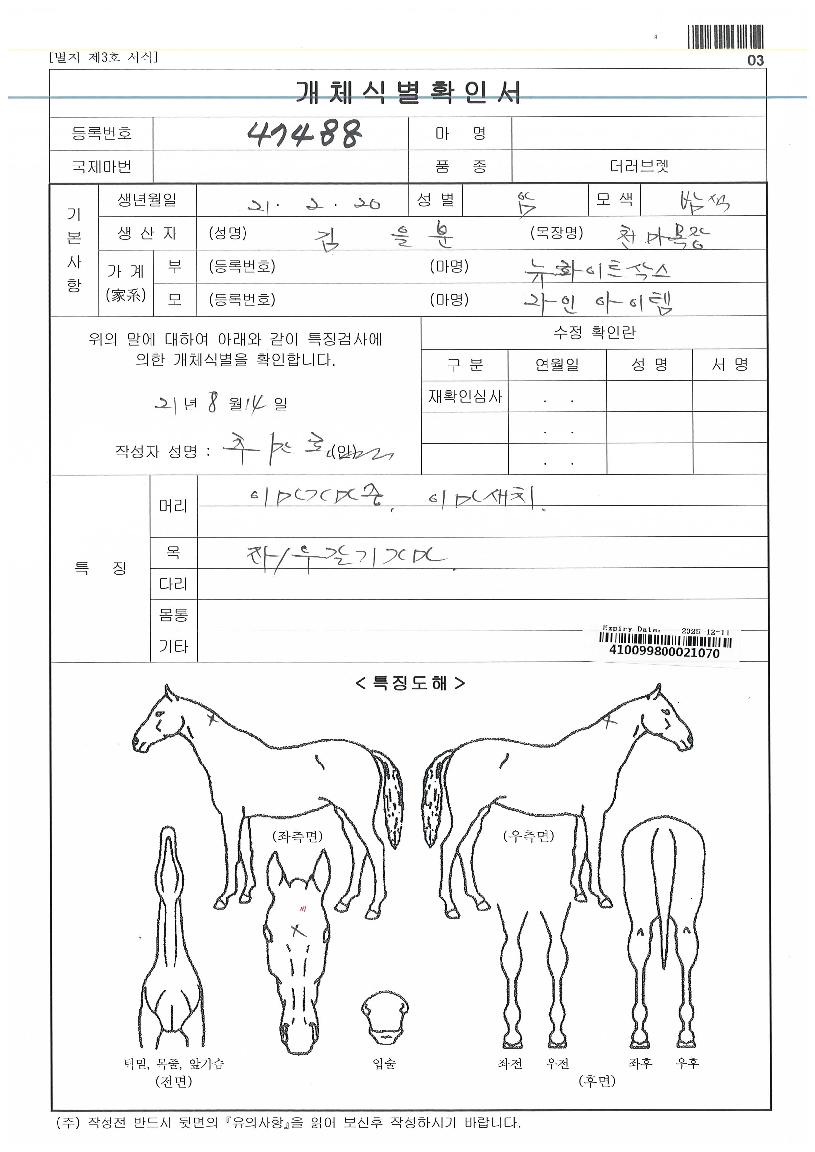 [별지 제3호 서식]
03
개체식별확인서
등록번호 47488 마 명
국제마번 품 종 더러브렛
기본사항
생년월일 21. 2. 20 성 별 암 모 색 밤색
생 산 자 (성명) 김 을 분 (목장명) 천마목장
가 계 (家系) 부 (등록번호) (마명) 뉴화이트삭스
모 (등록번호) (마명) 라인아이템
위의 말에 대하여 아래와 같이 특징검사에
의한 개체식별을 확인합니다.
21년 8월 14일
작성자 성명 : (인)
수정 확인란
구 분 연월일 성 명 서 명
재확인심사 . .
. .
. .
특 징
머리
목
다리
몸통
기타
Expiry Date: 2025-12-11
410099800021070
< 특징도해 >
(좌측면) (우측면)
턱밑, 목줄, 앞가슴 입술 좌전 우전 좌후 우후
(전면) (후면)
(주) 작성전 반드시 뒷면의 『유의사항』을 읽어 보신후 작성하시기 바랍니다.